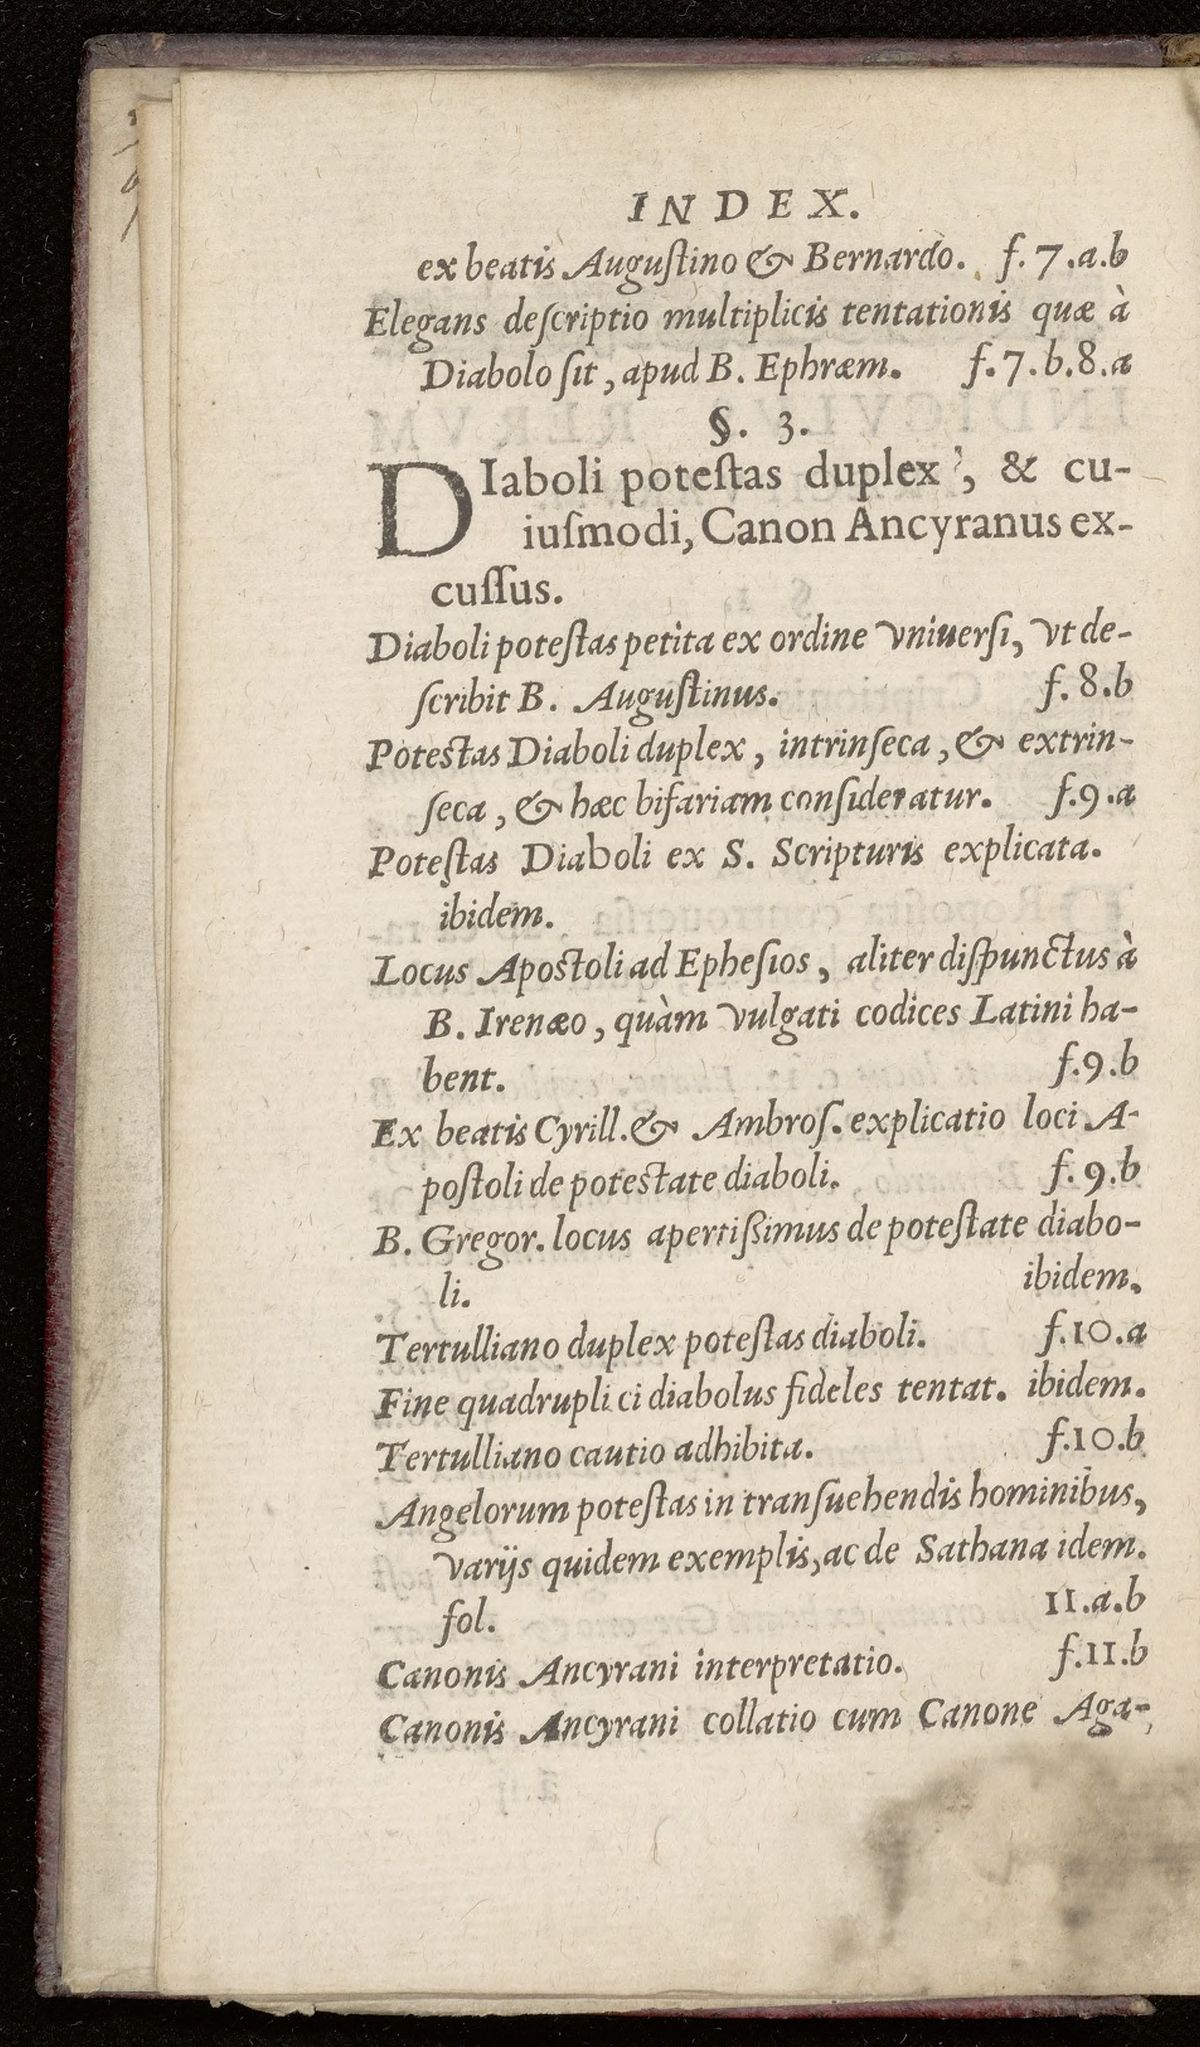 INDEX.
ex beatis Auguſtino & Bernardo. f. 7.a.b
Elegans deſcriptio multiplicis tentationis quæ à
Diabolo ſit, apud B. Ephræm. f. 7. b. 8. a
§. 3.
DIaboli poteſtas duplex, & cu-
iuſmodi, Canon Ancyranus ex-
cuſſus.
Diaboli poteſtas petita ex ordine vniuerſi, vt de-
ſcribit B. Auguſtinus. f. 8.b
Poteſtas Diaboli duplex, intrinſeca, & extrin-
ſeca, & hæc bifariam conſideratur. f.9.a
Poteſtas Diaboli ex S. Scripturis explicata.
ibidem.
Locus Apoſtoli ad Epheſios, aliter diſpunctus à
B. Irenæo, quàm vulgati codices Latini ha-
bent. f.9.b
Ex beatis Cyrill. & Ambroſ. explicatio loci A-
poſtoli de poteſtate diaboli. f. 9.b
B. Gregor. locus apertißimus de poteſtate diabo-
li. ibidem.
Tertulliano duplex poteſtas diaboli. f.10.a
Fine quadrupli ci diabolus fideles tentat. ibidem.
Tertulliano cautio adhibita. f.10.b
Angelorum poteſtas in tranſuehendis hominibus,
varijs quidem exemplis, ac de Sathana idem.
fol. 11.a.b
Canonis Ancyrani interpretatio. f.11.b
Canonis Ancyrani collatio cum Canone Aga-